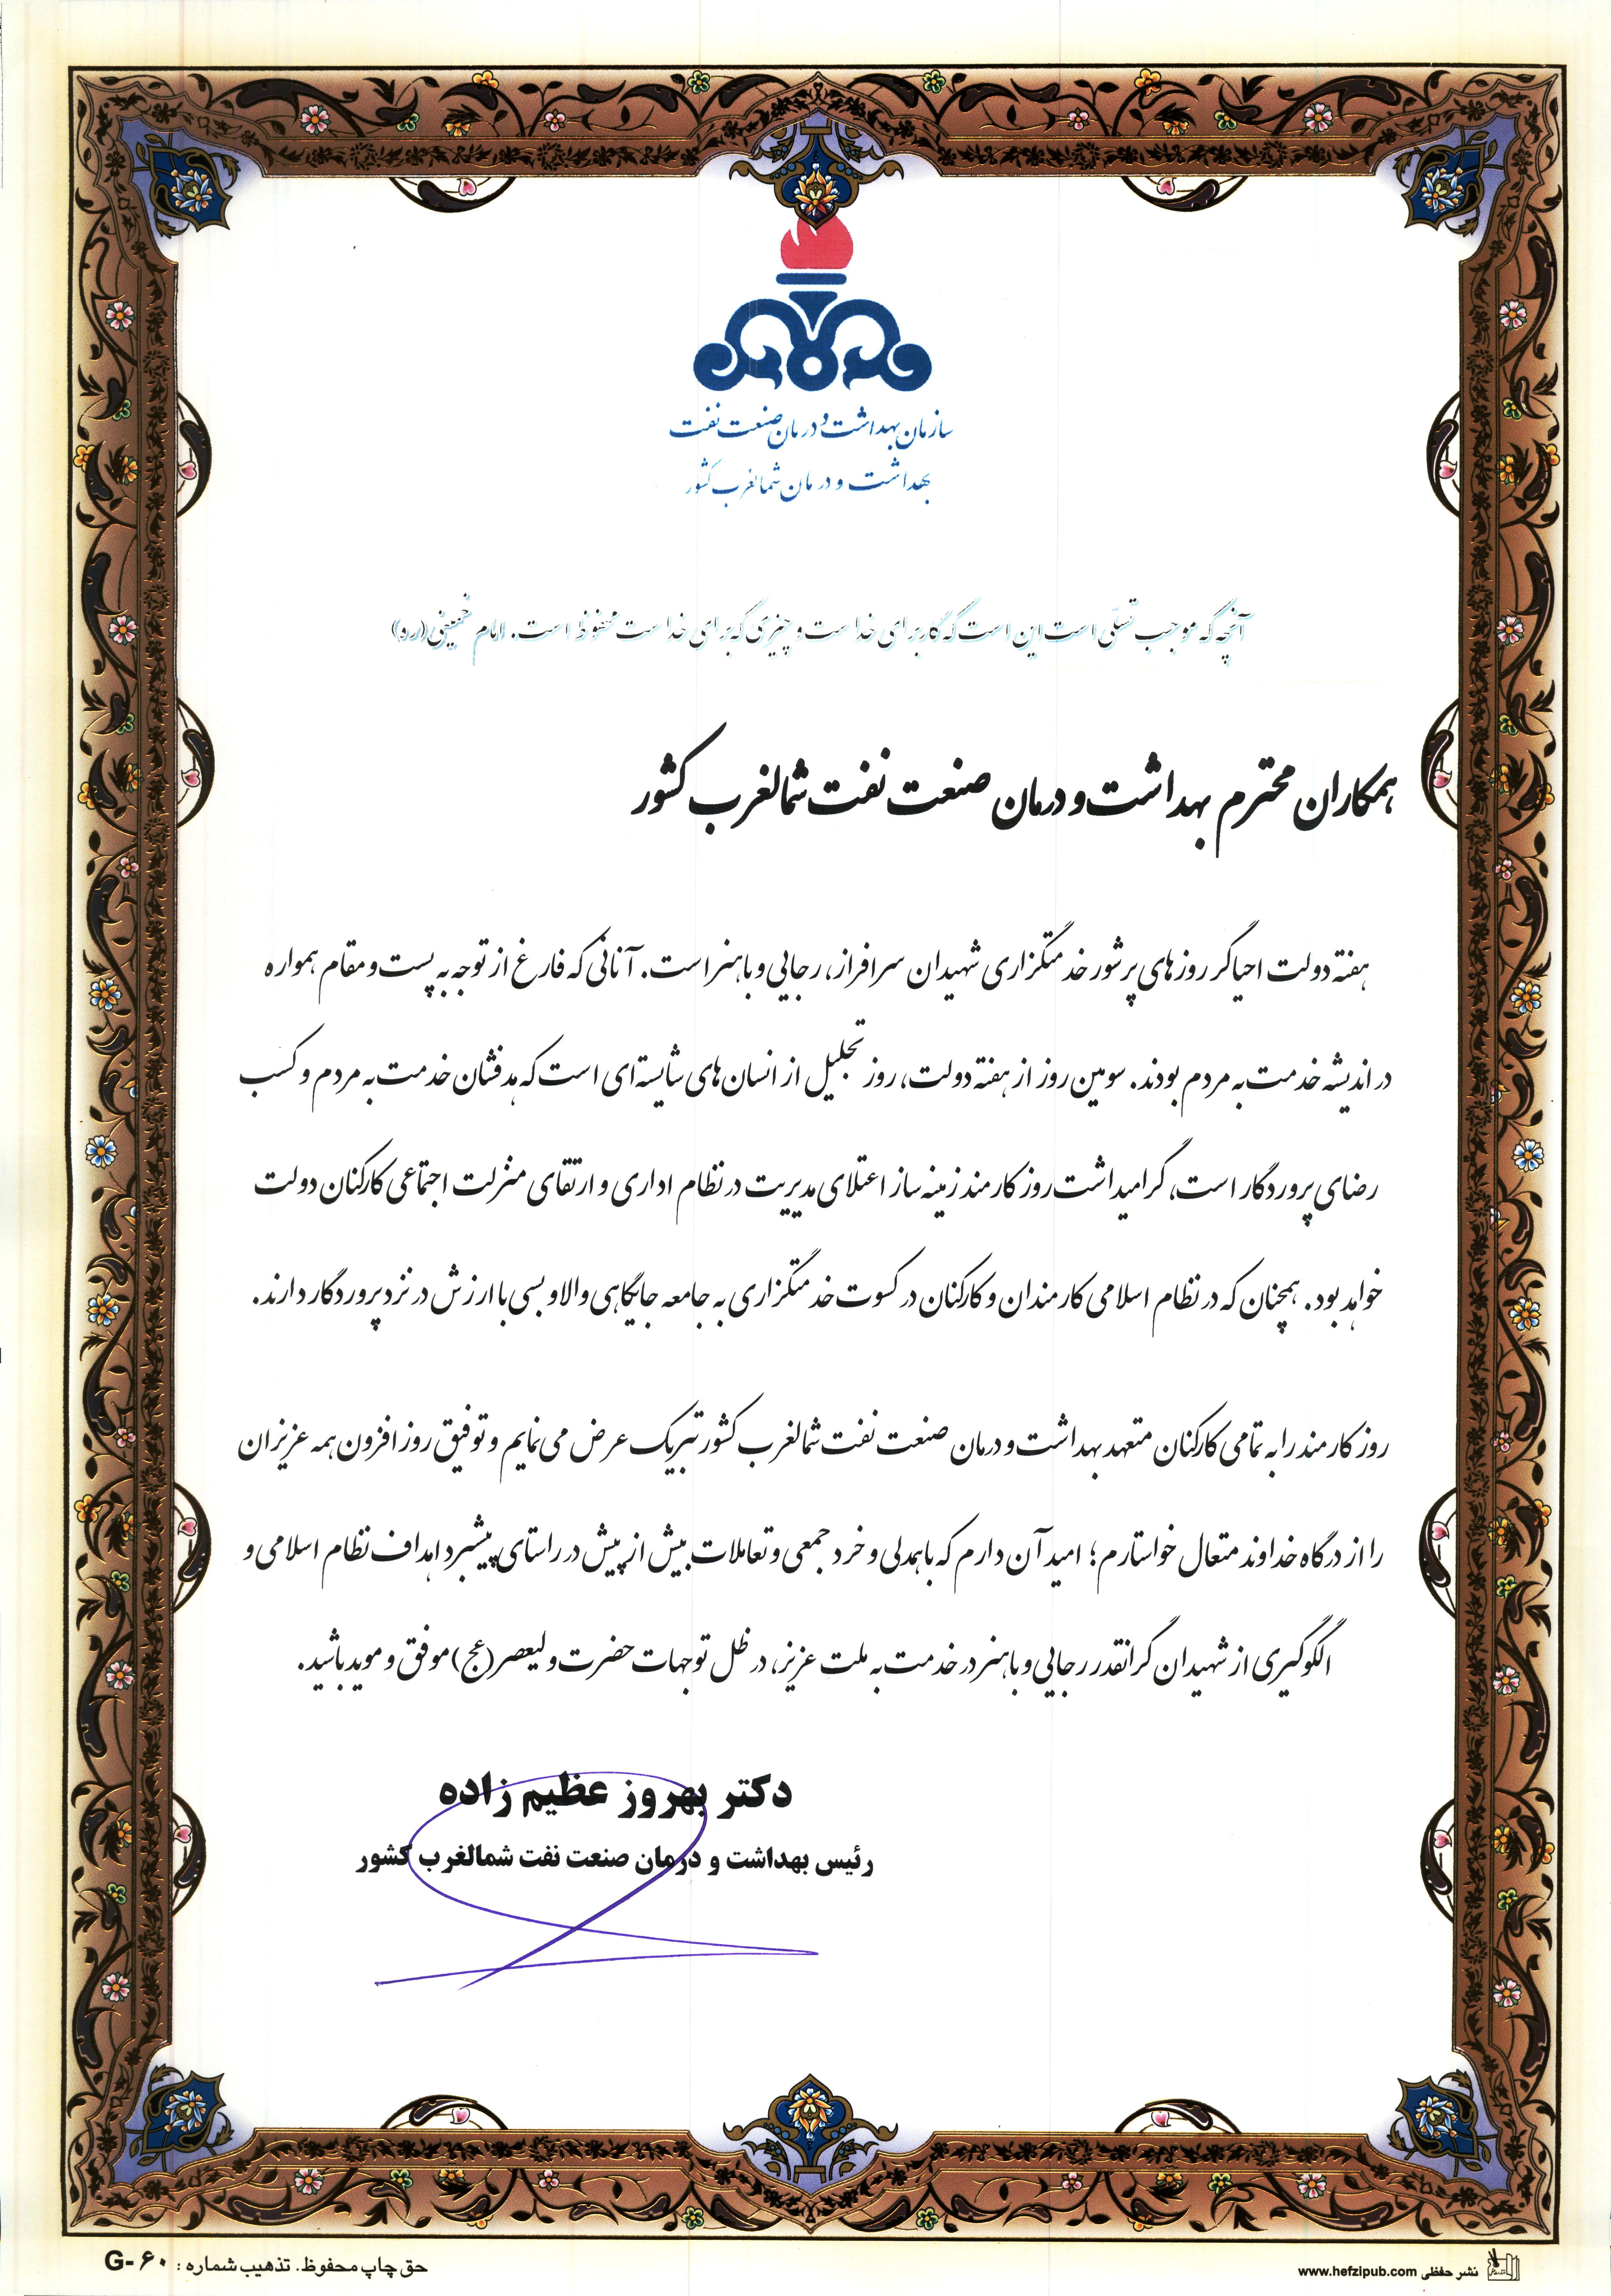 سازمان بهداشت و درمان صنعت نفت
بهداشت و درمان شمالغرب کشور
آنچه که موجب تسلّی است این است که کار برای خداست و چیزی که برای خداست محفوظ است. امام خمینی(ره)
همکاران محترم بهداشت و درمان صنعت نفت شمالغرب کشور
هفته دولت احیاگر روزهای پرشور خدمتگزاری شهیدان سرافراز، رجایی و باهنر است. آنانی که فارغ از توجه به پست و مقام همواره
در اندیشه خدمت به مردم بودند. سومین روز از هفته دولت، روز تجلیل از انسان‌های شایسته‌ای است که هدفشان خدمت به مردم و کسب
رضای پروردگار است، گرامیداشت روز کارمند زمینه ساز اعتلای مدیریت در نظام اداری و ارتقای منزلت اجتماعی کارکنان دولت
خواهد بود. همچنان که در نظام اسلامی کارمندان و کارکنان در کسوت خدمتگزاری به جامعه جایگاهی والا و بسی با ارزش در نزد پروردگار دارند.
روز کارمند را به تمامی کارکنان متعهد بهداشت و درمان صنعت نفت شمالغرب کشور تبریک عرض می‌نمایم و توفیق روز افزون همه عزیزان
را از درگاه خداوند متعال خواستارم؛ امید آن دارم که با همدلی و خرد جمعی و تعاملات بیش از پیش در راستای پیشبرد اهداف نظام اسلامی و
الگوگیری از شهیدان گرانقدر رجایی و باهنر در خدمت به ملت عزیز، در ظل توجهات حضرت ولیعصر(عج) موفق و موید باشید.
دکتر بهروز عظیم زاده
رئیس بهداشت و درمان صنعت نفت شمالغرب کشور
حق چاپ محفوظ. تذهیب شماره : G-۶۰
نشر حفظی www.hefzipub.com